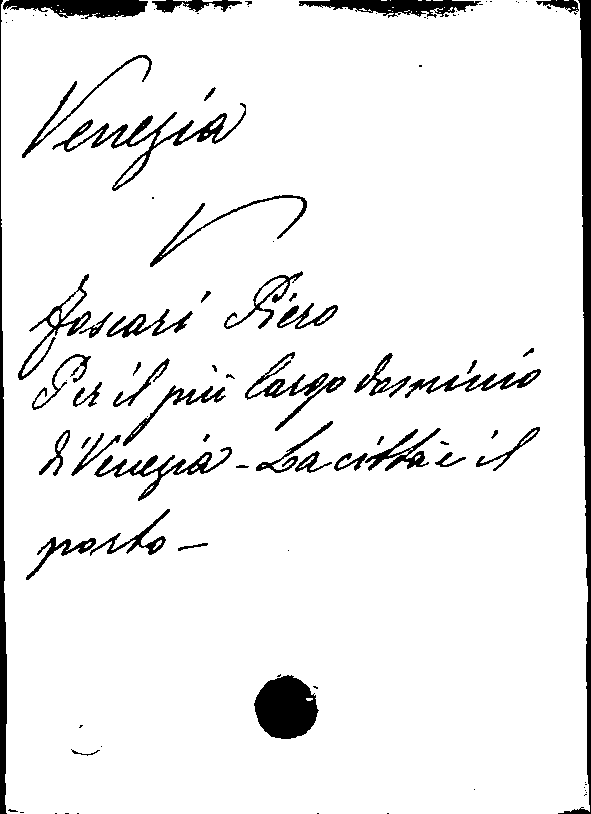 Venezia
V
Foscari Piero
Per il più largo dominio
di Venezia - La città e il
porto -